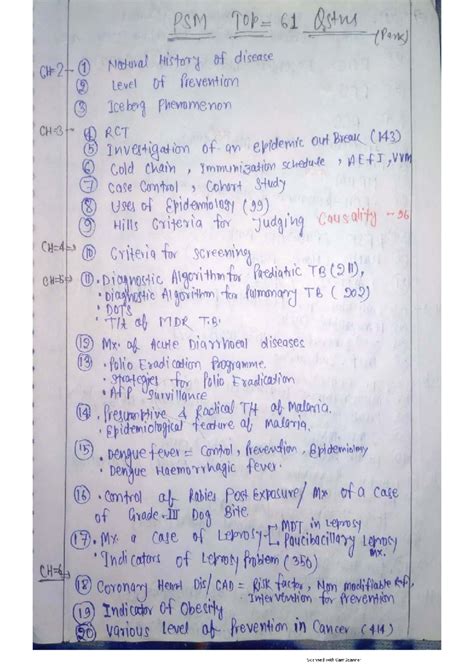 PSM Top = 61 Qstns
(Park)
CH=2 → ① Natural History of disease
② Level of Prevention
③ Iceberg Phenomenon
CH=3 → ④ RCT
⑤ Investigation of an epidemic outBreak (143)
⑥ Cold chain, Immunization schedule, AEFI, VVM
⑦ Case Control, Cohort Study
⑧ Uses of Epidemiology (99)
⑨ Hills Criteria for Judging Causality - 96
CH=4 → ⑩ Criteria for Screening
CH=5 → ⑪ • Diagnostic Algorithm for Paediatric TB (211),
• Diagnostic Algorithm for Pulmonary TB (202)
• DOTS
• T/t of MDR T.B.
⑫ Mx. of Acute Diarrhoeal diseases
⑬ • Polio Eradication Programme.
• Strategies for Polio Eradication
• AFP Survillance
⑭ • Presumptive & Radical T/t of Malaria.
• Epidemiological feature of malaria.
⑮ • Dengue fever = Control, Prevention, Epidemiology
• Dengue Haemorrhagic fever.
⑯ • Control of Rabies Post Exposure / Mx of a case
of Grade-III Dog Bite
⑰ • Mx. a Case of Leprosy - MDT in Leprosy
Paucibacillary Leprosy Mx.
• Indicators of Leprosy Problem (350)
CH=6 → ⑱ Coronary Heart Dis/CAD = Risk factor, Non modifiable R.f.,
Intervention for Prevention
⑲ Indicator Of Obesity
⑳ Various Level of Prevention in Cancer (414)
Scanned with CamScanner